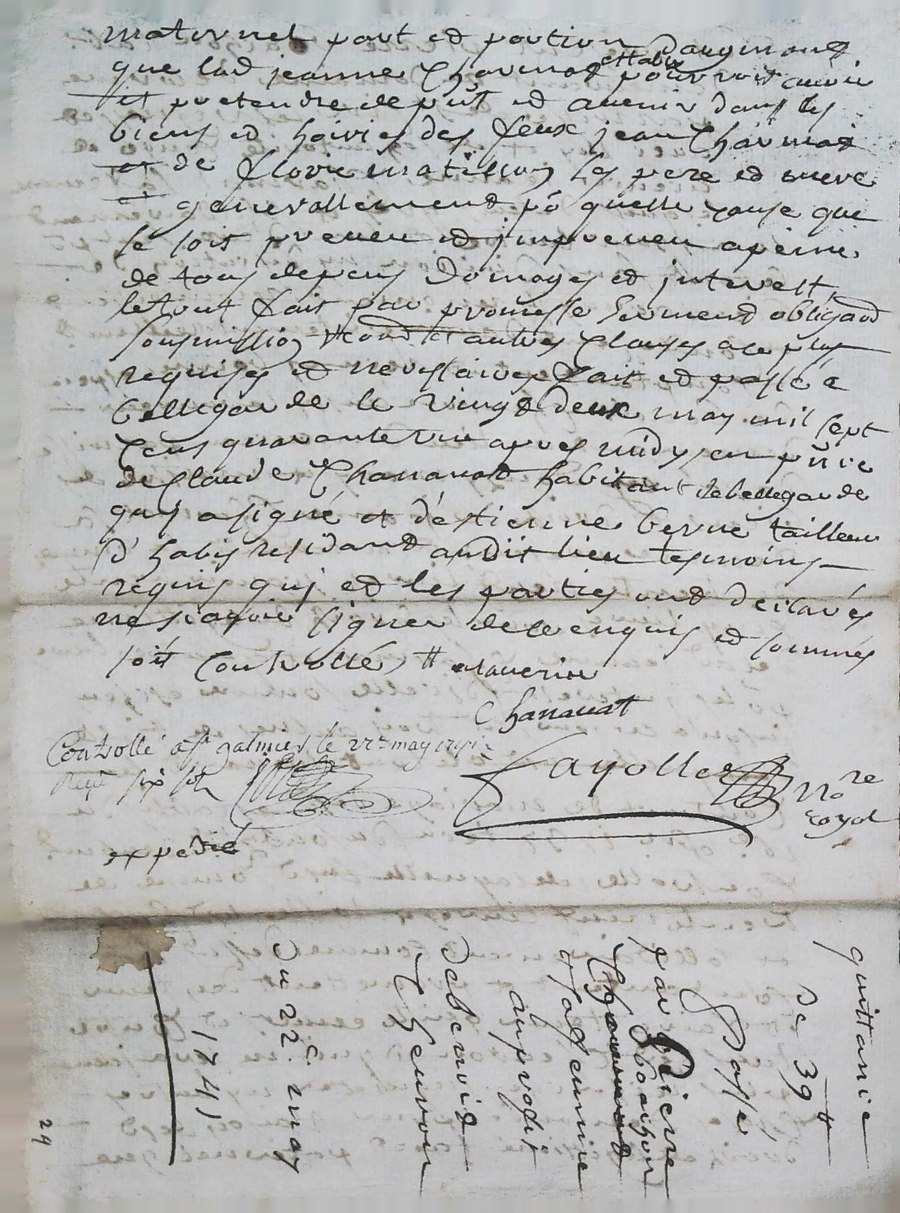 maternel part et portion daugment
que lad jeanne Charmat et tabis pourroit avoir
et pretendre depñt et avenir dans les
biens et hoiries des feux jean Charmat
et de florie matillon les pere et mere
et generallement po quelle cause que
se soit preveu et jmpreveu apeine
de tous depens domages et jnterest
letout fait par promesse serment obligaõn
soumission et autres clauses ace plus
requises et necessaires fait et passé a
bellegarde le vingt deux may mil sept
cens quarante un apres midy en pñce
de Claude Chanavat habitant de bellegarde
quj a signé et d'estienne berne tailleur
d'habis residant audit lieu tesmoins
requis quj et les parties ont declarés
ne sçavoir signer de ce enquis et sommés
soit Controllé
Chanavat
Controllé a st galmier le 22e may 1741
Reçu six sols
fayolle Nore
royal
expedié
quittance
de 39 ₶
Passé
par pierre
a sa femme
au profit
de benoit
Thevenon
Du 22e may
1741
29